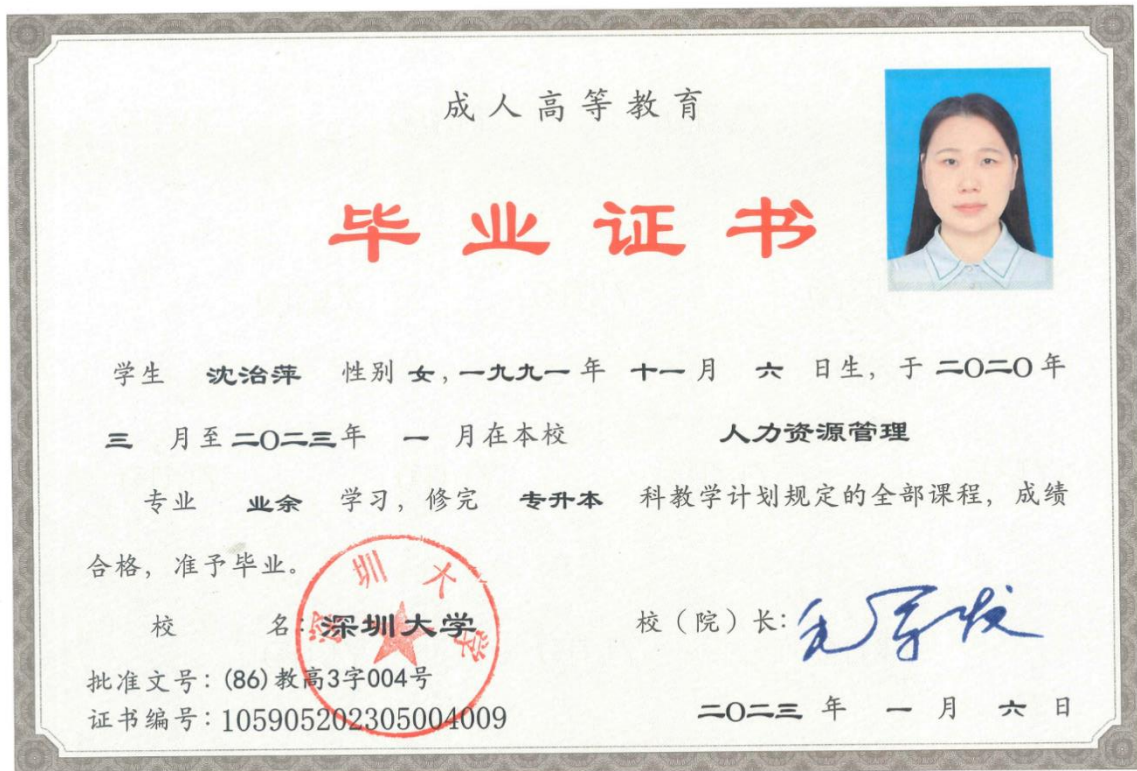 成人高等教育
毕业证书
学生 沈治萍 性别 女, 一九九一 年 十一 月 六 日生, 于 二〇二〇 年
三 月至 二〇二三 年 一 月在本校 人力资源管理
专业 业余 学习, 修完 专升本 科教学计划规定的全部课程, 成绩
合格, 准予毕业。
校 名: 深圳大学 校（院）长: 毛军发
深圳大学
批准文号: (86)教高3字004号
证书编号: 105905202305004009
二〇二三 年 一 月 六 日